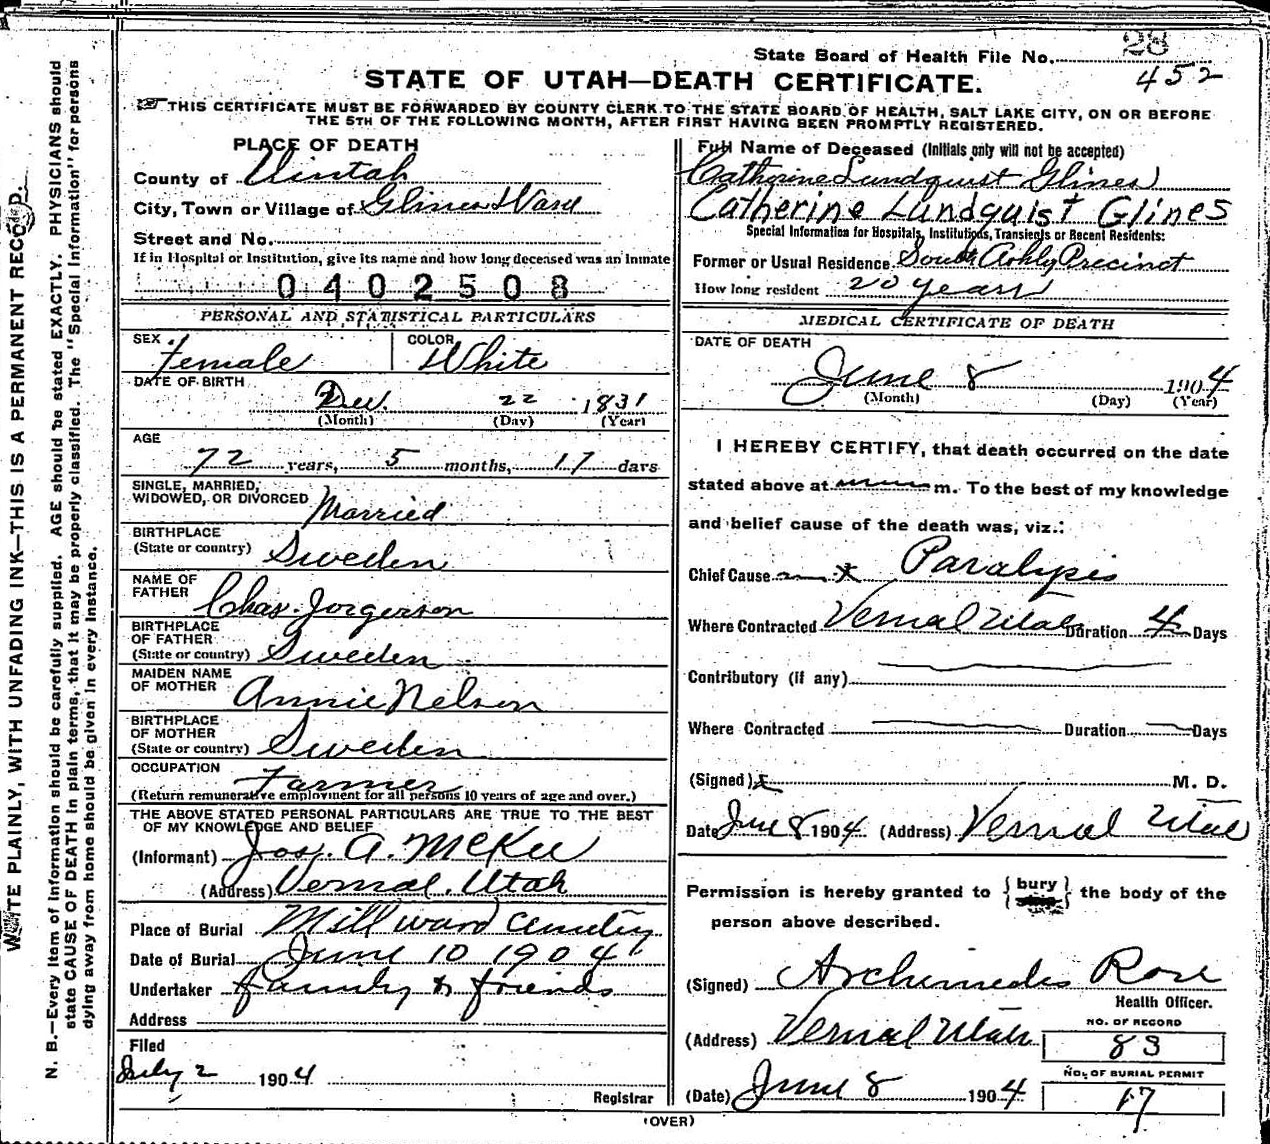 State Board of Health File No. 28
452
STATE OF UTAH—DEATH CERTIFICATE.
THIS CERTIFICATE MUST BE FORWARDED BY COUNTY CLERK TO THE STATE BOARD OF HEALTH, SALT LAKE CITY, ON OR BEFORE
THE 5TH OF THE FOLLOWING MONTH, AFTER FIRST HAVING BEEN PROMPTLY REGISTERED.
WRITE PLAINLY, WITH UNFADING INK—THIS IS A PERMANENT RECORD.
N. B.—Every item of information should be carefully supplied. AGE should be stated EXACTLY. PHYSICIANS should
state CAUSE OF DEATH in plain terms, that it may be properly classified. The "Special Information" for persons
dying away from home should be given in every instance.
PLACE OF DEATH
County of Uintah
City, Town or Village of Glines Ward
Street and No.
If in Hospital or Institution, give its name and how long deceased was an inmate
0402508
PERSONAL AND STATISTICAL PARTICULARS
SEX Female COLOR White
DATE OF BIRTH
Dec. 22 1831
(Month) (Day) (Year)
AGE
72 years, 5 months, 17 days
SINGLE, MARRIED,
WIDOWED, OR DIVORCED Married
BIRTHPLACE
(State or country) Sweden
NAME OF
FATHER Chas. Jorgerson
BIRTHPLACE
OF FATHER
(State or country) Sweden
MAIDEN NAME
OF MOTHER Annie Nelson
BIRTHPLACE
OF MOTHER
(State or country) Sweden
OCCUPATION Farmer
(Return remunerative employment for all persons 10 years of age and over.)
THE ABOVE STATED PERSONAL PARTICULARS ARE TRUE TO THE BEST
OF MY KNOWLEDGE AND BELIEF
(Informant) Jos. A. McKee
(Address) Vernal, Utah
Place of Burial Mill ward Cemetry
Date of Burial June 10 1904
Undertaker family & friends
Address
Filed
July 2 1904
Registrar
Full Name of Deceased (Initials only will not be accepted)
Catherine Lundquist Glines
Catherine Lundquist Glines
Special Information for Hospitals, Institutions, Transients or Recent Residents:
Former or Usual Residence South Ashly Precinct
How long resident 20 years
MEDICAL CERTIFICATE OF DEATH
DATE OF DEATH
June 8 1904
(Month) (Day) (Year)
I HEREBY CERTIFY, that death occurred on the date
stated above at m. To the best of my knowledge
and belief cause of the death was, viz.:
Chief Cause Paralysis
Where Contracted Vernal Utah Duration 4 Days
Contributory (if any)
Where Contracted Duration Days
(Signed) x M. D.
Date June 8 1904 (Address) Vernal Utah
Permission is hereby granted to { bury } the body of the
person above described.
(Signed) Archimedes Rose
Health Officer.
(Address) Vernal Utah
NO. OF RECORD
83
(Date) June 8 1904
NO. OF BURIAL PERMIT
17
(OVER)